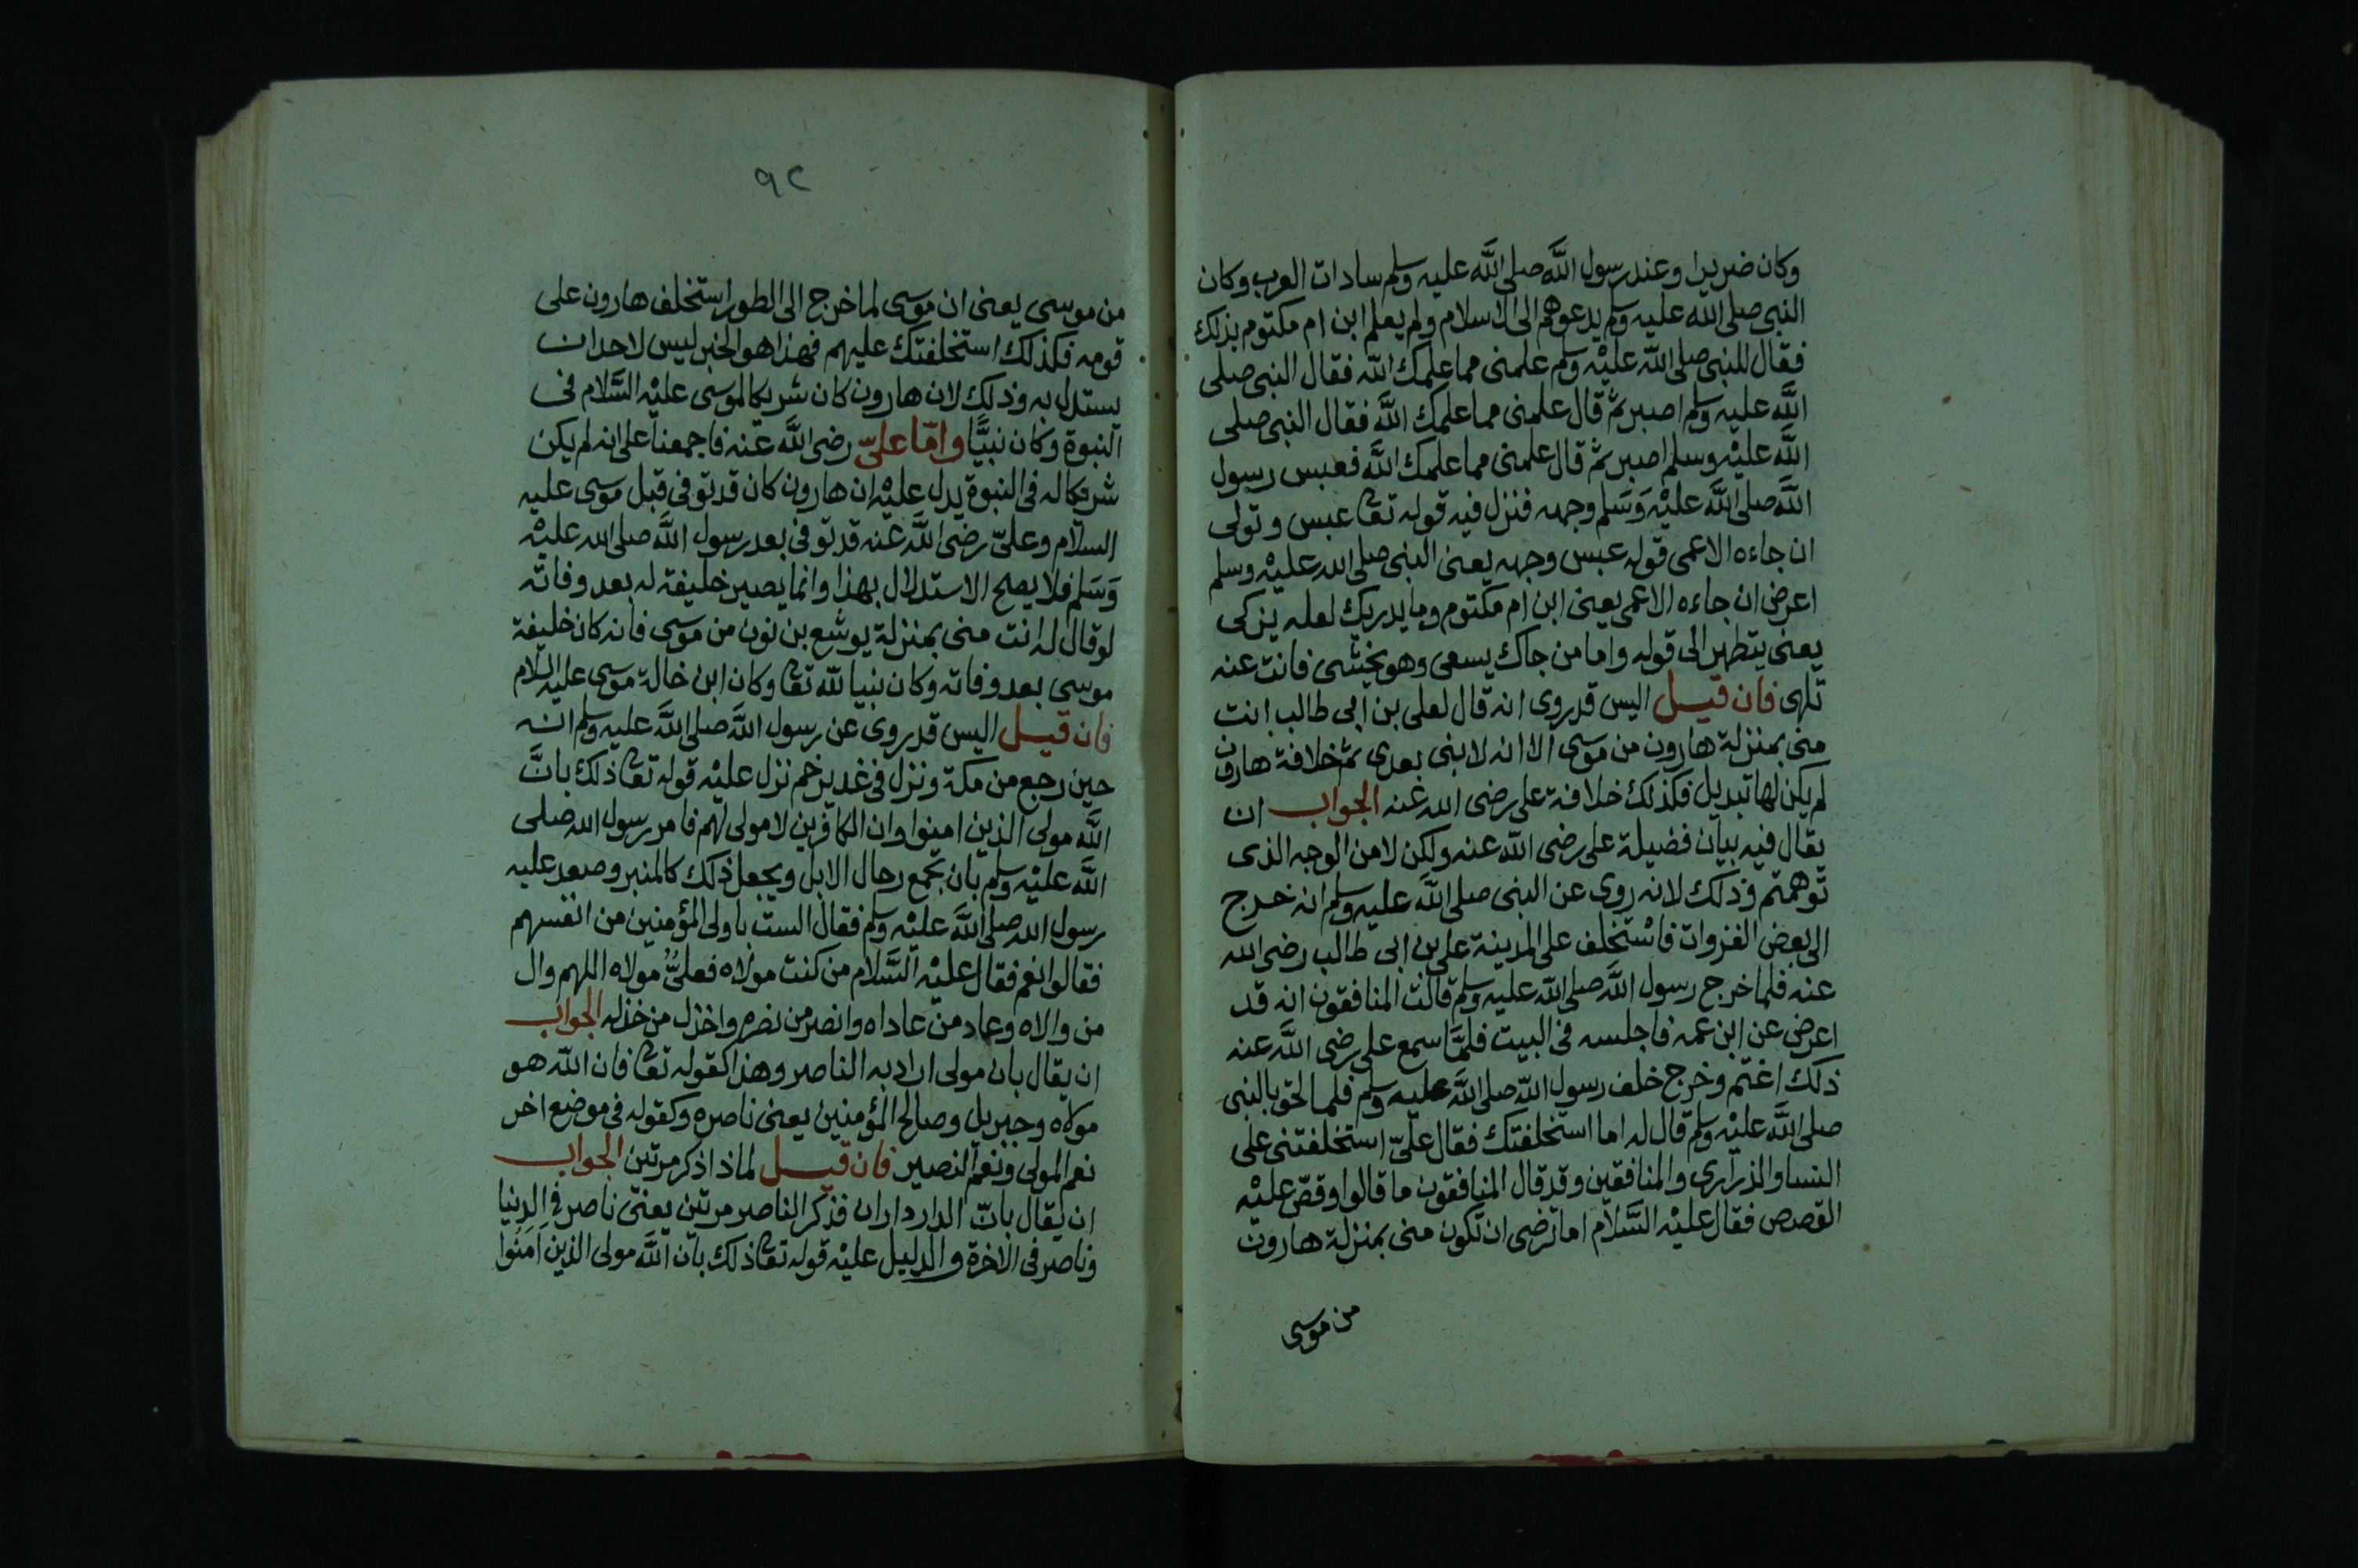 وكان ضريرا وعند رسول اللَّه صلى اللَّه عليه وسلم سادات العرب وكان
النبى صلى الله عليه وسلم يدعوهم الى الاسلام ولم يعلم ابن ام مكتوم بذلك
فقال للنبى صلى اللّه عليْه وسلم علمنى مما علمك اللّه فقال النبى صلى
اللَّه عليه وسلم اصبر ثم قال علمنى مما علمك اللَّه فقال النبى صلى
اللَّه عليْه وسلم اصبر ثم قال علمنى مما علمك اللَّه فعبس رسول
اللَّه صلى اللَّه عليْه وَسَلم وجهه فنزل فيه قوله تعا عبس وتولى
ان جاءه الاعمى قوله عبس وجهه يعنى النبى صلى الله عليْه وسلم
اعرض ان جاءه الاعمى يعنى ابن ام مكتوم وما يدريك لعله يزكى
يعنى يتطهر الى قوله واما من جاك يسعى وهو يخشى فانت عنه
تلهى فان قيل اليس قد روى انه قال لعلى بن ابى طالب انت
منى بمنزلة هارون من موسى الا انه لا نبى بعدى ثم خلافة هارون
لم يكن لها تبديل فكذلك خلافة على رضى الله عنه الجواب ان
يقال فيه بيان فضيلة على رضى اللّه عنه ولكن لا من الوجه الذى
توهمتم وذلك لانه روى عن النبى صلى اللَّه عليه وسلم انه خرج
الى بعض الغزوات فاسْتخلف على المدينة على بن ابى طالب رضى الله
عنه فلما خرج رسول اللَّه صلى اللّه عليه وسلم قالت المنافقون انه قد
اعرض عن ابن عمه فاجلسه فى البيت فلمَّا سمع على رضى اللَّه عنه
ذلك اغتم وخرج خلف رسول اللّه صلى اللَّه عليه وسلم فلما لحق بالنبى
صلى اللَّه عليْه وسلم قال له اما استخلفتك فقال علىّ استخلفتنى على
النسا والذرارى والمنافقين وقد قال المنافقون ما قالوا وقصّ عليْه
القصص فقال عليْه السَّلام اما ترضى ان تكون منى بمنزلة هارون
من موسى
٩٢
من موسى يعنى ان موسى لما خرج الى الطور استخلف هارون على
قومه فكذلك استخلفتك عليهم فهذا هو الخبر ليس لاحد ان
يستدل به وذلك لان هارون كان شريكا لموسى عليْه السَّلام فى
النبوة وكان نبيًّا وامّا علىّ رضى اللَّه عنه فاجمعنا على انه لم يكن
شريكا له فى النبوة يدل عليْه ان هارون كان قد توفى قبل موسى عليه
السلام وعلىّ رضى اللَّه عنه قد توفى بعد رسول اللَّه صلى الله عليْه
وَسَلم فلا يصح الاستدلال بهذا وانما يصير خليفة له بعد وفاته
لو قال له انت منى بمنزلة يوشع بن نون من موسى فانه كان خليفة
موسى بعد وفاته وكان نبيا لله تعا وكان ابن خالة موسى عليه السلام
فان قيل اليس قد روى عن رسول اللَّه صلى اللَّه عليه وسلم انه
حين رجع من مكة ونزل فى غدير خم نزل عليْه قوله تعا ذلك بانَّ
اللَّه مولى الذين امنوا وان الكافرين لا مولى لهم فامر رسول الله صلى
اللَّه عليْه وسلم بان تجمع رحال الابل ويجعل ذلك كالمنبر وصعد عليه
رسول الله صلى اللَّه عليْه وسلم فقال الست باولى المؤمنين من انفسهم
فقالوا نعم فقال عليْه السَّلام من كنت مولاه فعلىٌّ مولاه اللهم وال
من والاه وعاد من عاداه وانصر من نصره واخذل من خذله الجواب
ان يقال بان مولى اراد به الناصر وهذا كقوله تعا فان اللّه هو
مولاه وجبريل وصالح المؤمنين يعنى ناصره وكقوله فى موضع اخر
نعم المولى ونعم النصير فان قيل لماذا ذكر مرتين الجواب
ان يقال بانّ الدار داران فذكر الناصر مرتين يعنى ناصر فى الدنيا
وناصر فى الاخرة والدليل عليْه قوله تعا ذلك بان اللَّه مولى الذين اَمَنُوا